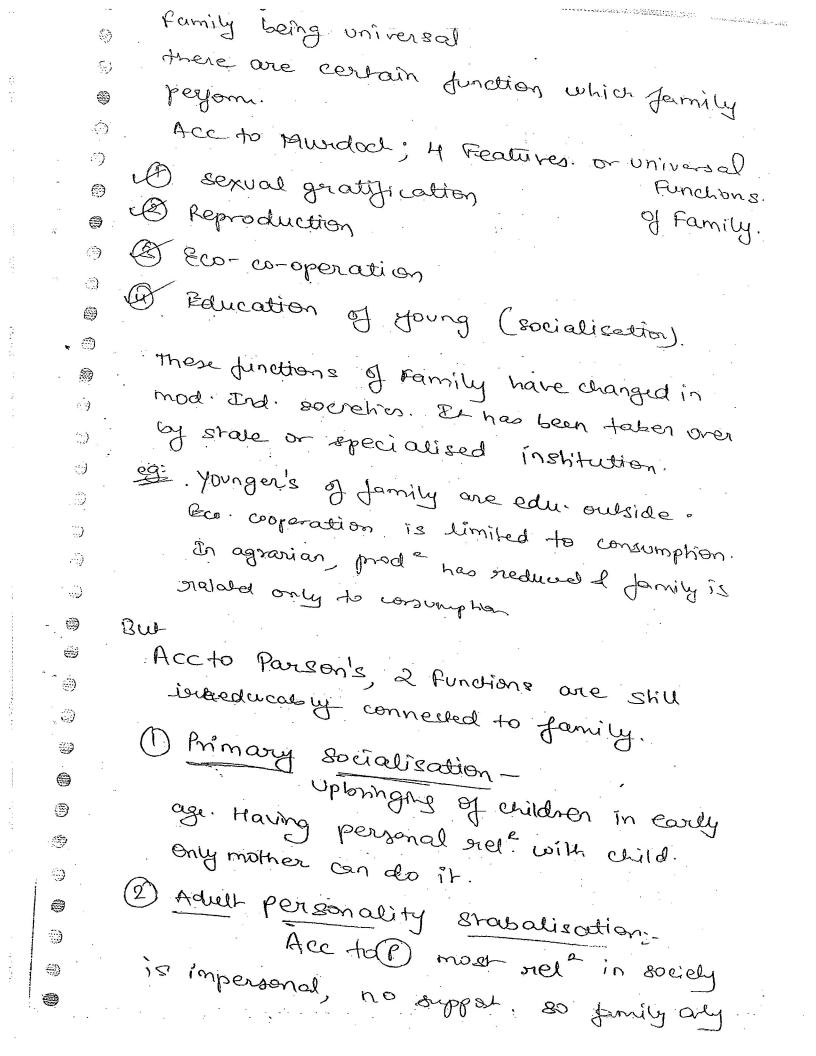 Family being universal
there are certain function which family
perform.
Acc to Murdoch; 4 Features. or universal
Functions.
of Family.
① sexual gratification
② Reproduction
③ Eco- co-operation
④ Education of young (socialisation).
These functions of Family have changed in
mod. Ind. societies. It has been taken over
by state or specialised institution.
eg:- . Younger's of family are edu. outside.
Eco. cooperation is limited to consumption.
In agrarian, prodⁿ has reduced & family is
ralated only to consumption
But
Acc to Parson's, 2 functions are still
irreducably connected to family.
① Primary socialisation -
Upbringing of children in early
age. Having personal relⁿ. with child.
Only mother can do it.
② Adult personality stabalisation:-
Acc to Ⓟ most relⁿ in society
is impersonal, no suppot. so family only